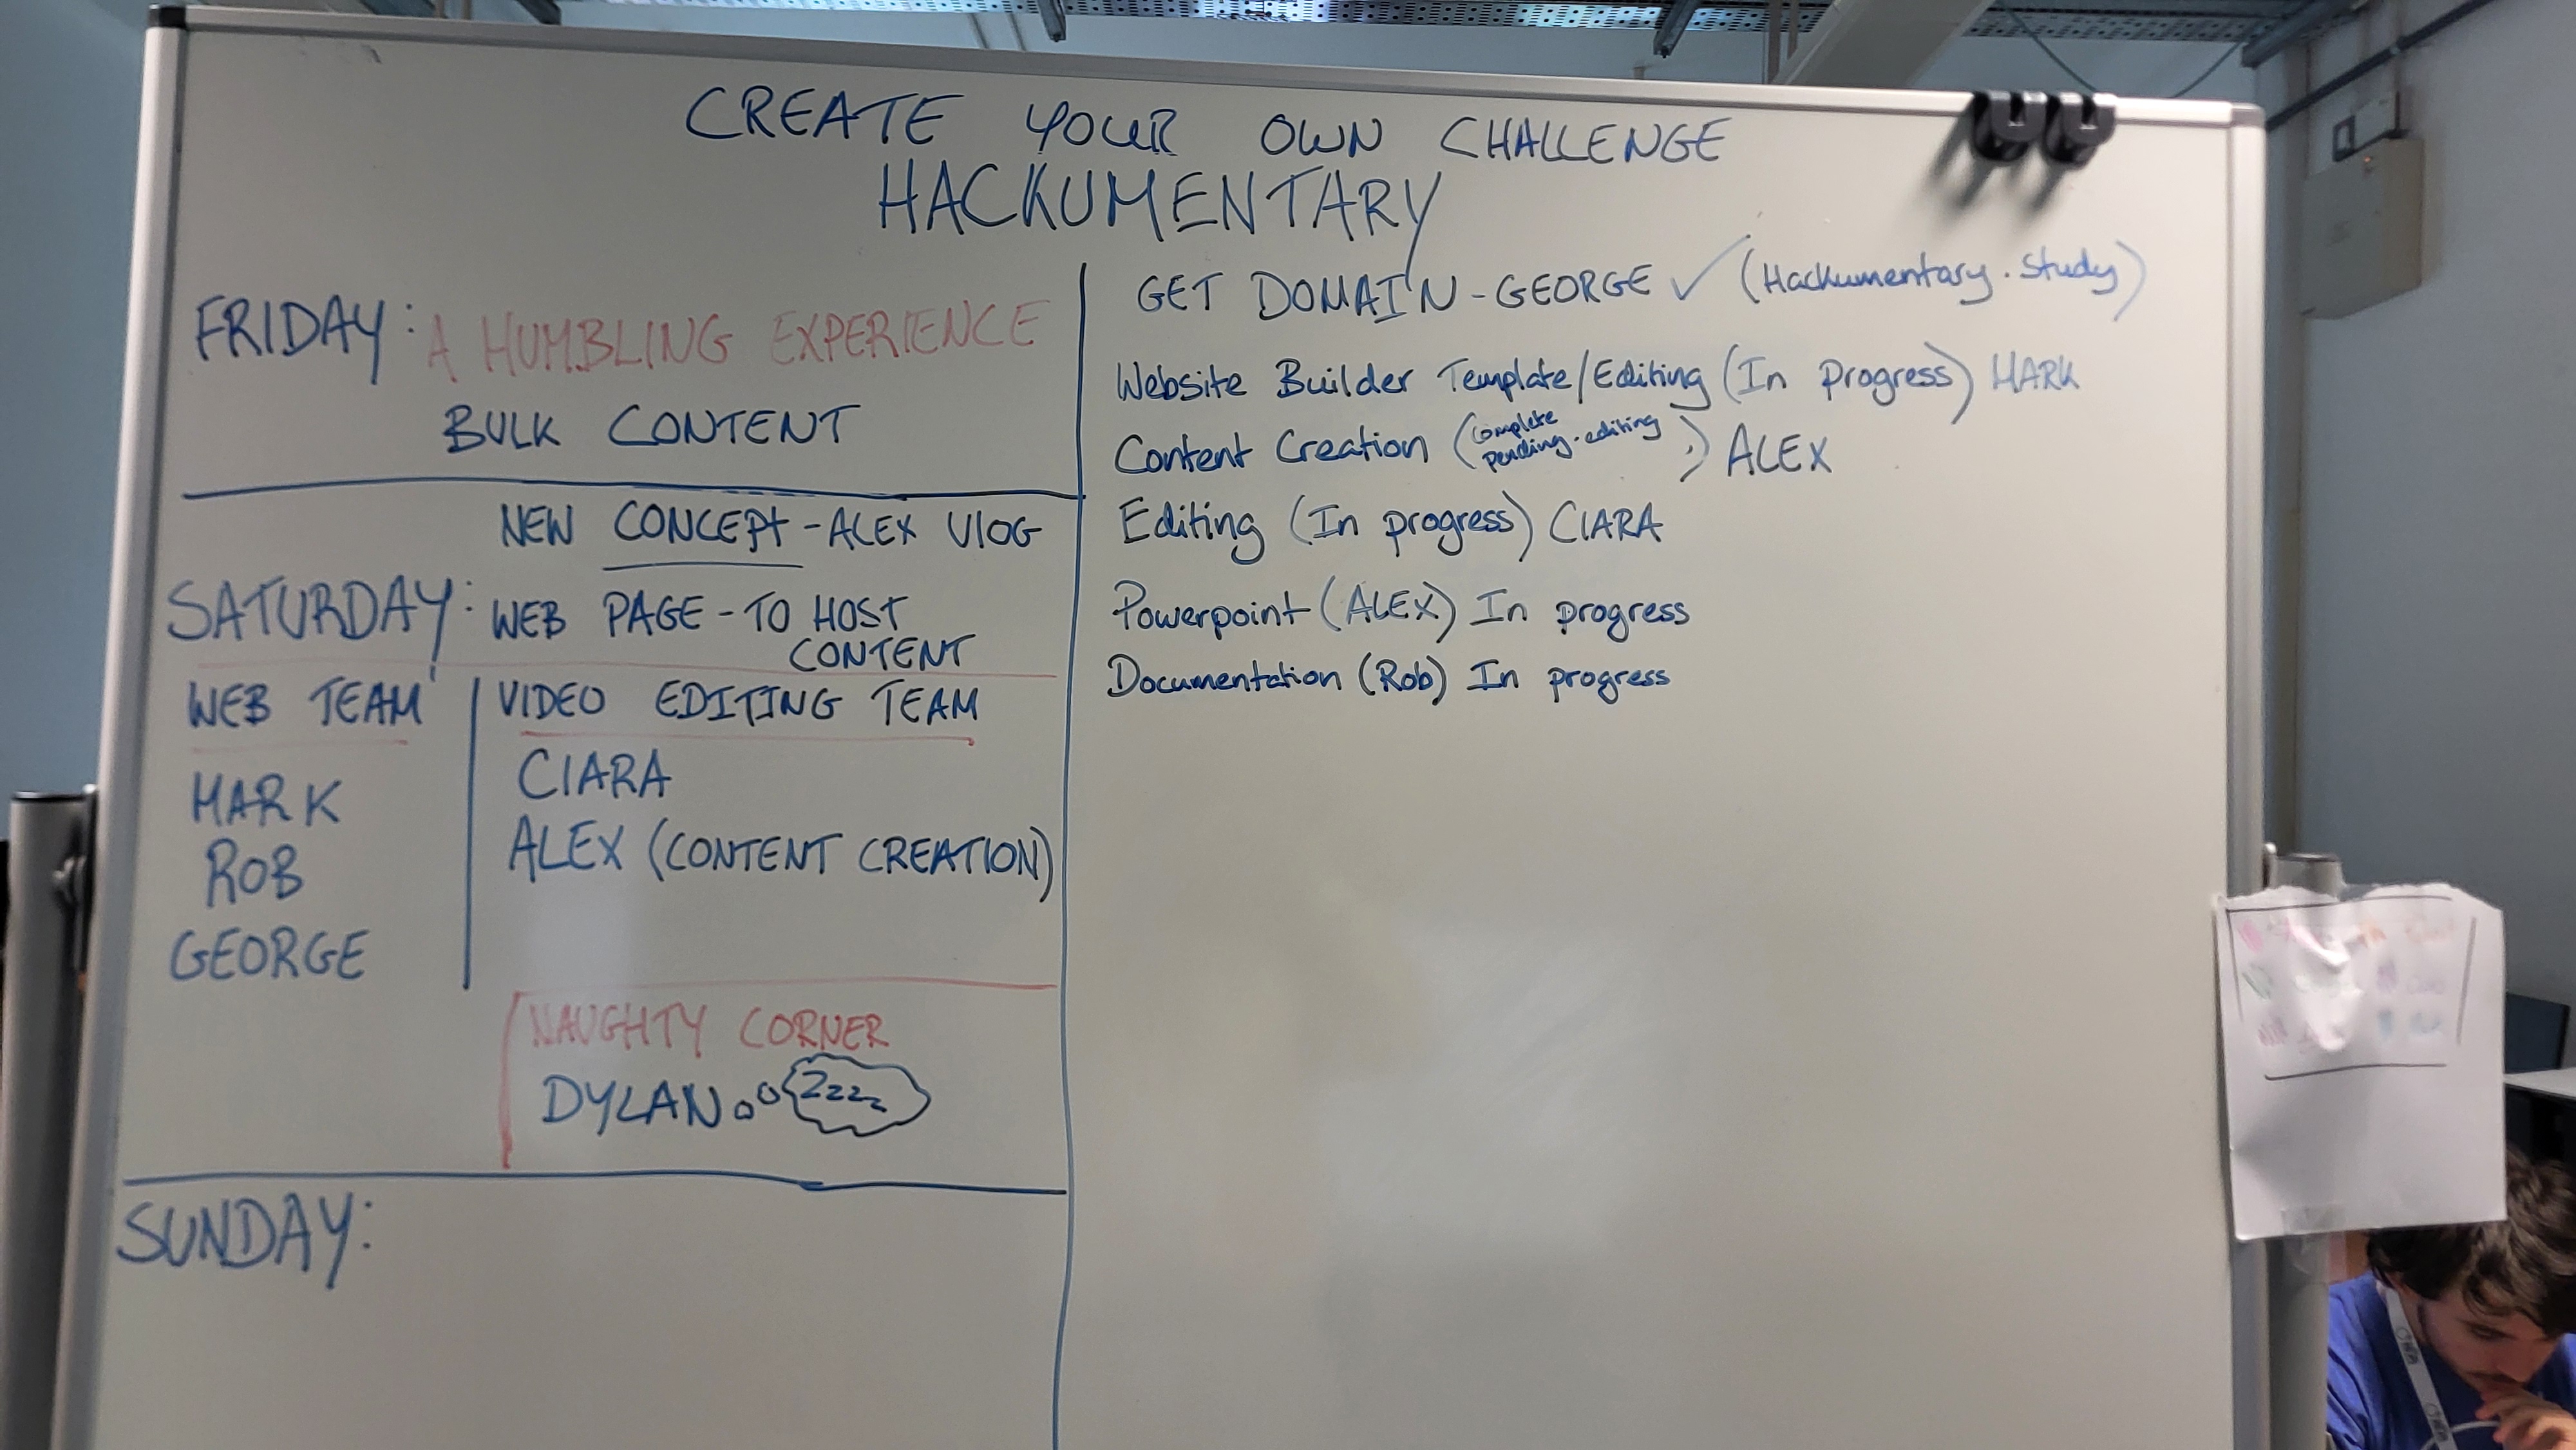 CREATE YOUR OWN CHALLENGE
HACKUMENTARY
FRIDAY: A HUMBLING EXPERIENCE
BULK CONTENT
NEW CONCEPT - ALEX VLOG
SATURDAY: WEB PAGE - TO HOST
CONTENT
WEB TEAM
MARK
ROB
GEORGE
VIDEO EDITING TEAM
CIARA
ALEX (CONTENT CREATION)
NAUGHTY CORNER
DYLAN
Zzzz
SUNDAY:
GET DOMAIN - GEORGE ✓ (Hackumentary.Study)
Website Builder Template/Editing (In Progress) MARK
Content Creation (Complete
pending-editing) ALEX
Editing (In progress) CIARA
Powerpoint (ALEX) In progress
Documentation (Rob) In progress